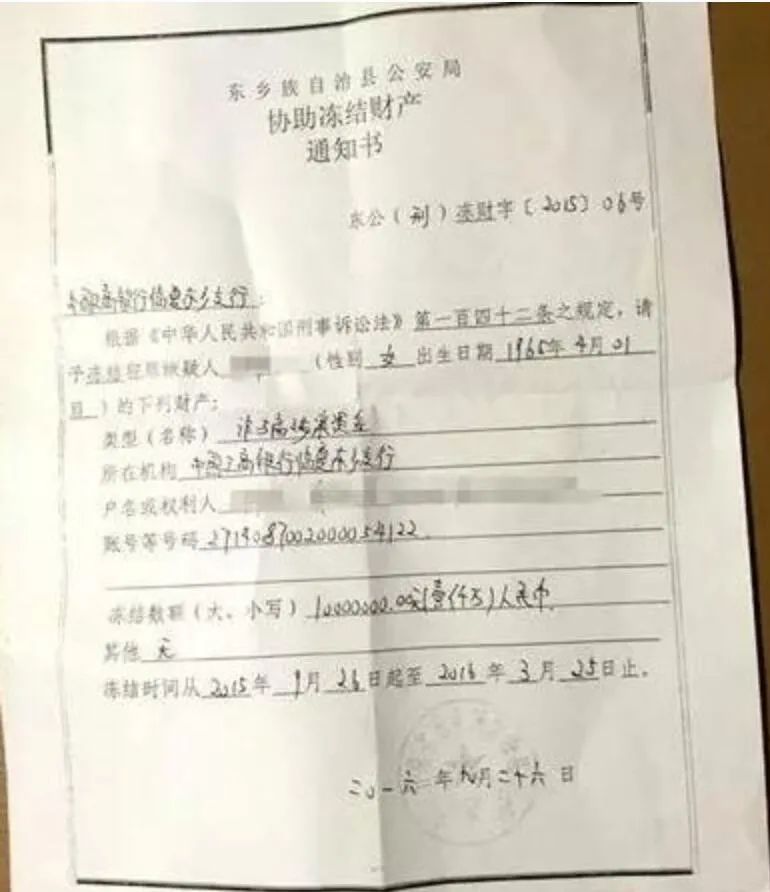 东乡族自治县公安局
协助冻结财产
通知书
东公（刑）冻财字〔2015〕06号
支行：
根据《中华人民共和国刑事诉讼法》第一百四十二条之规定，请
予冻结犯罪嫌疑人（性别 女 出生日期 1965年4月01
日）的下列财产：
类型（名称）
所在机构 中国工商银行临夏东乡支行
户名或权利人
账号等号码 2714087002000054122
冻结数额（大、小写）10000000.00元(壹仟万)人民币
其他 无
冻结时间从 2015年 9月 26日起至 2016年 3月 25日止。
二〇一六年九月二十六日